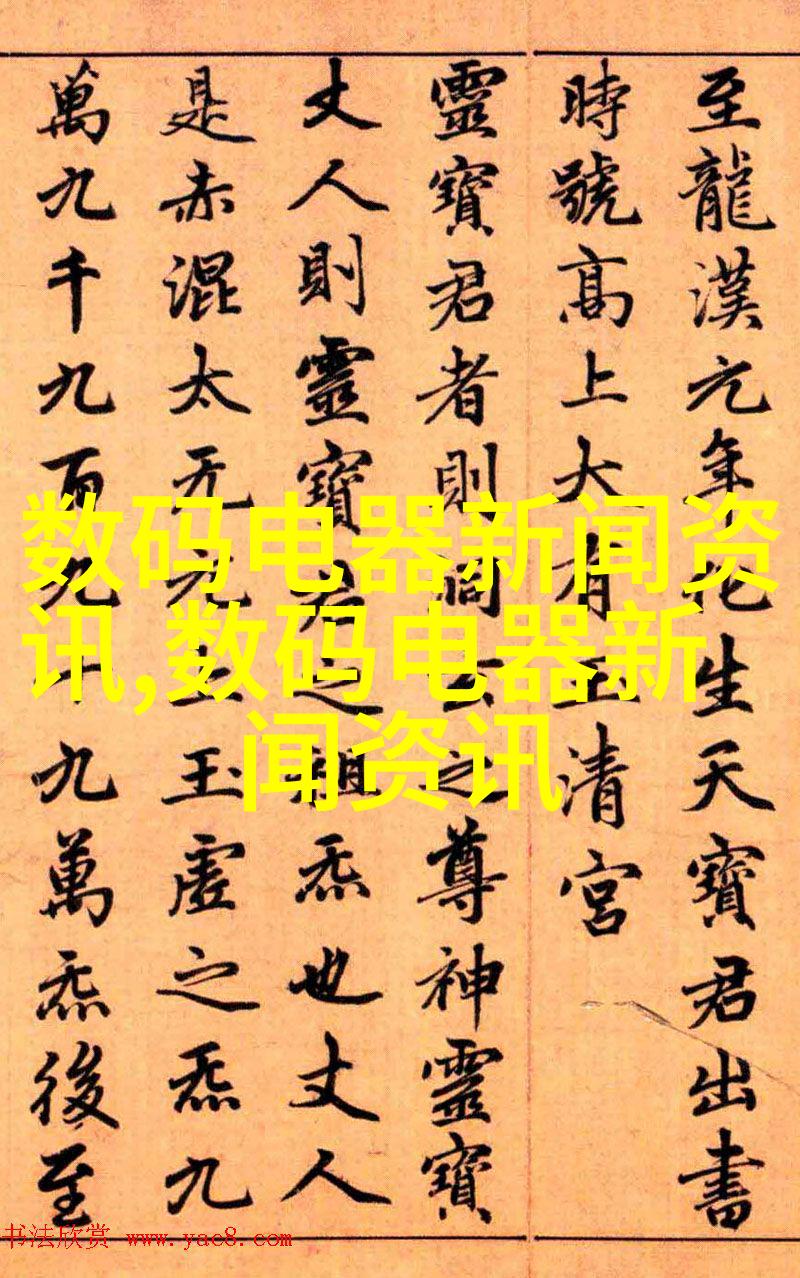 至龍漢元年化生天寶君出書
時號高上大有玉清宮
靈寶君者則洞玄之尊神靈寶
丈人則靈寶君之祖炁也丈人
是赤混太无元上玉虛之炁九
萬九千九百九十九萬炁後至
数码电器新闻资
讯,数码电器新
闻资讯
书法欣赏 www.yac8.com